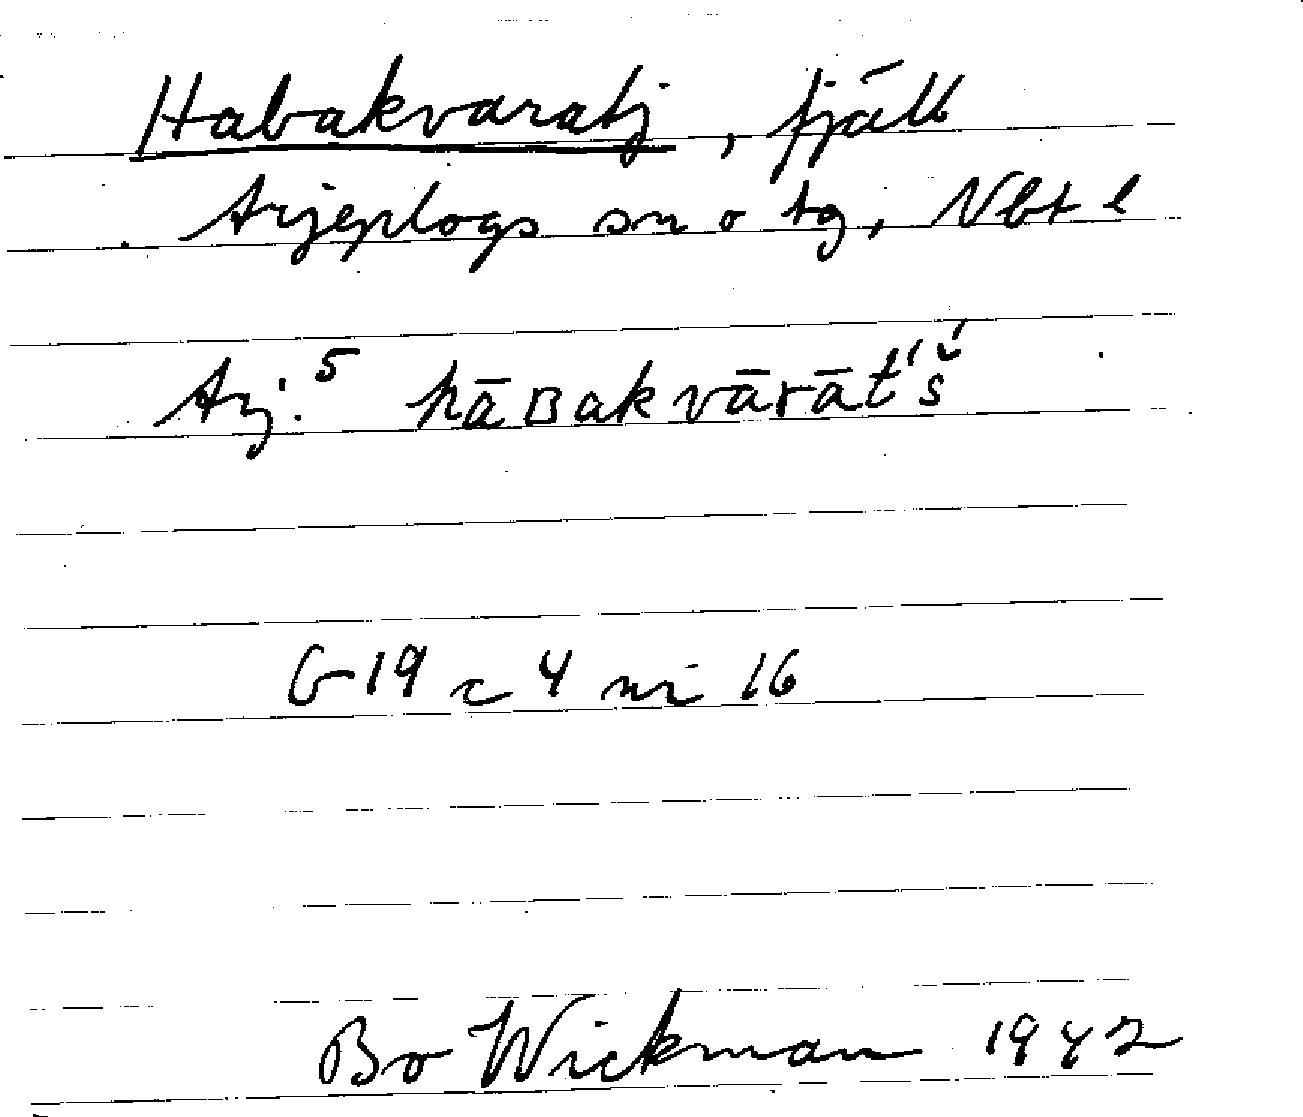 Habakvaratj, fjäll
Arjeplogs sn o tg, Nbt l
Arj.⁵ hāʙakvārāt́'š́
G 19 c 4 nr 16
Bo Wickman 1942